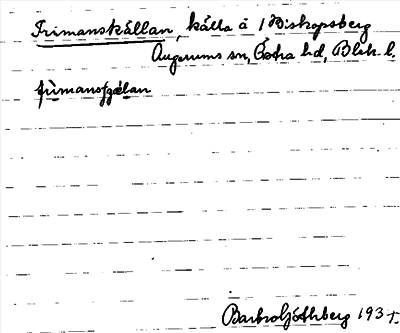 Frimanskällan, källa å 1 Biskopsberg
Augerums sn, Östra hd, Blek. l.
frìmansɟɛ̀lan
Barbro Göthberg 193